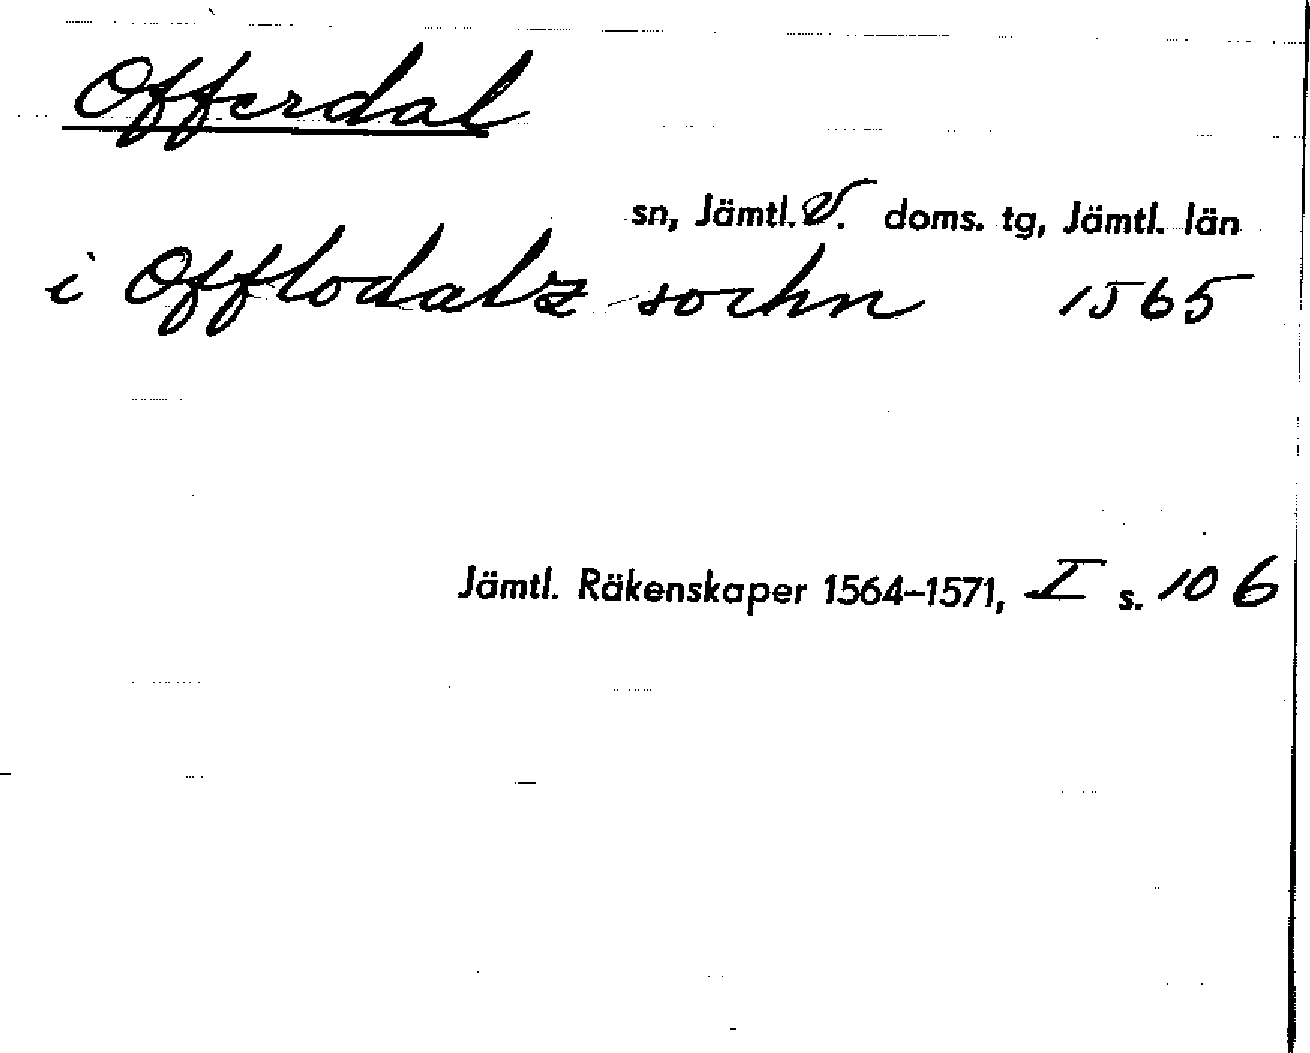 Offerdal
sn, Jämtl. V. doms. tg, Jämtl. län
i Offlodalz sochn 1565
Jämtl. Räkenskaper 1564–1571, I s. 106